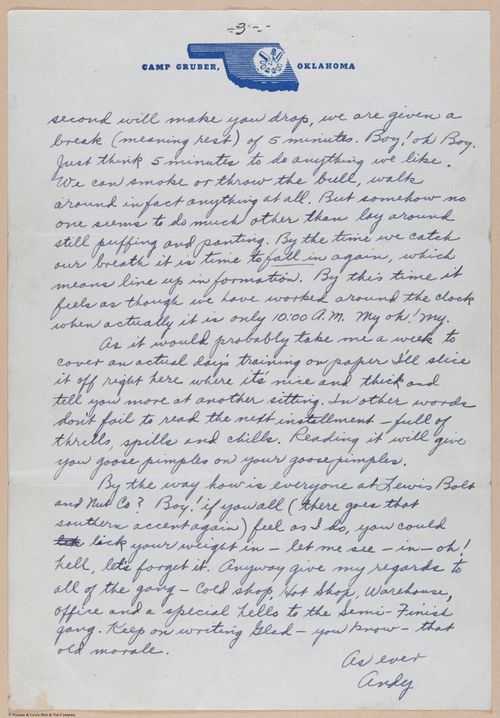 -3-
CAMP GRUBER, OKLAHOMA
second will make you drop, we are given a
break (meaning rest) of 5 minutes. Boy! oh Boy.
Just think 5 minutes to do anything we like.
We can smoke or throw the bull, walk
around in fact anything at all. But somehow no
one seems to do much other than lay around
still puffing and panting. By the time we catch
our breath it is time to fall in again, which
means line up in formation. By this time it
feels as though we have worked around the clock
when actually it is only 10:00 A.M. My oh! My.
As it would probably take me a week to
cover an actual day's training on paper I'll slice
it off right here where it's nice and thick and
tell you more at another sitting. In other words
don't fail to read the next installment - full of
thrills, spills and chills. Reading it will give
you goose pimples on your goosepimples.
By the way how is everyone at Lewis Bolt
and Nut Co? Boy! if you all (there goes that
southern accent again) feel as I do, you could
lick your weight in - let me see - in - oh!
hell, let's forget it. Anyway give my regards to
all of the gang - Cold shop, Hot Shop, Warehouse,
office and a special hello to the Semi-Finish
gang. Keep on writing Glad - you know - that
old morale.
As ever
Andy
© Pensom & Lewis Bolt & Nut Company